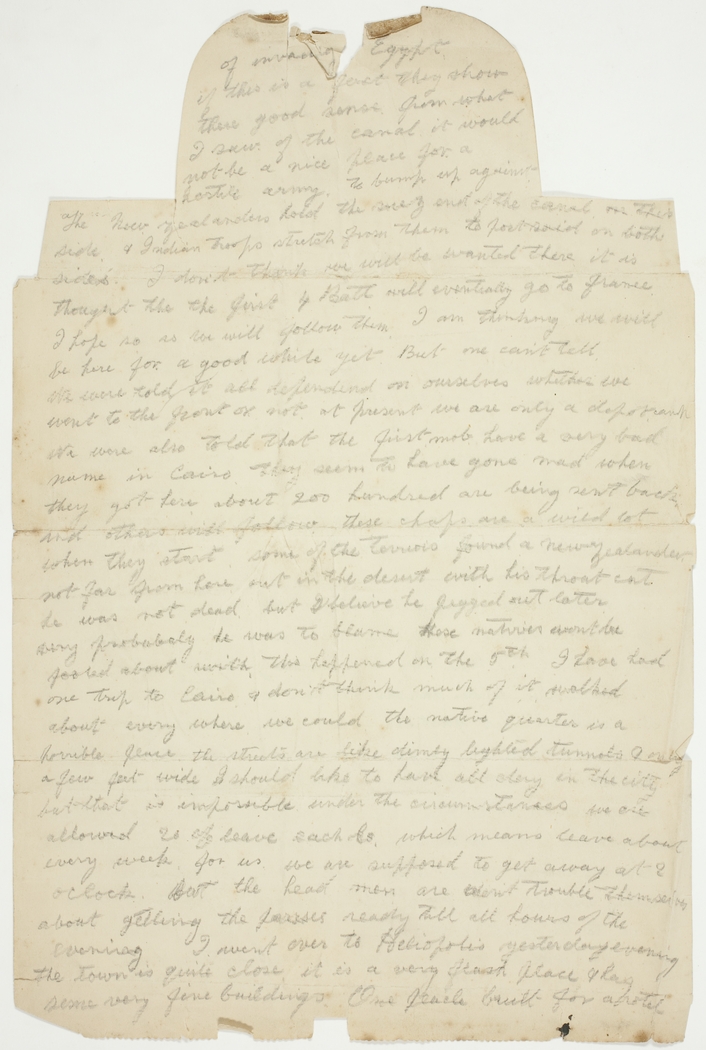 of invading Egypt
if this is a fact they show
there good sense. from what
I saw of the canal it would
not be a nice place for a
hostile army. to bump up against
The New Zealanders hold the suez end of the canal on this
side, & Indian troops stretch from them to port said on both
sides. I don't think we will be wanted there it is
thought the the first 4 Batt will eventualy go to france
I hope so as we will follow them. I am thinking we will
be here for a good while yet But one can't tell
We were told it all depended on ourselves whether we
went to the front or not. at present we are only a
We were also told that the first mob have a very bad
name in Cairo. they seem to have gone mad when
they got here about 200 hundred are being sent back
and others will follow. these chaps are a wild lot
when they start. some of the terriers found a new zealander
not far from here out in the desert with his throat cut
he was not dead but I believe he pegged out later
very probabely he was to blame these natives wont be
fooled about with. this happened on the 5th I have had
one trip to Cairo & don't think much of it walked
about every where we could the native quarter is a
horrible place the streets are like dimly lighted tunnels & only
a few feet wide I should like to have all day in the city
but that is impossible under the circumstances we are
allowed 20 % leave each Co. which means leave about
every week for us we are supposed to get away at 2
oclock. But the head men are dont trouble themselves
about getting the passes ready till all hours of the
evening I went over to Heliopolis yesterday evening
the town is quite close it is a very flash place & has
some very fine buildings. One place built for a hotel